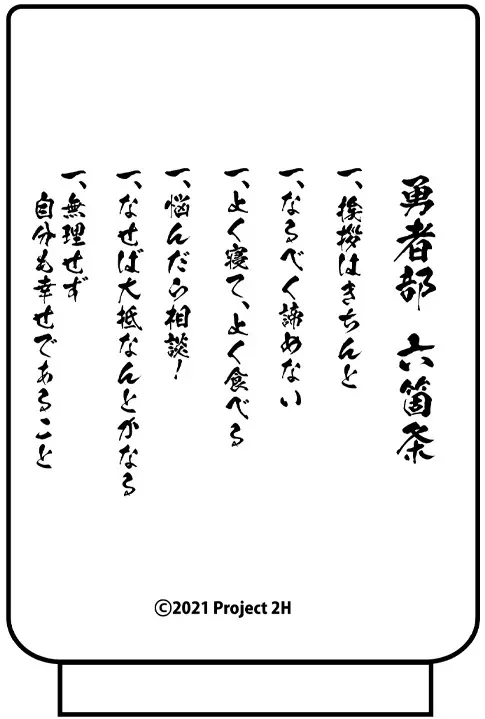 勇者部 六箇条
一、挨拶はきちんと
一、なるべく諦めない
一、よく寝て、よく食べる
一、悩んだら相談！
一、なせば大抵なんとかなる
一、無理せず
自分も幸せであること
©2021 Project 2H